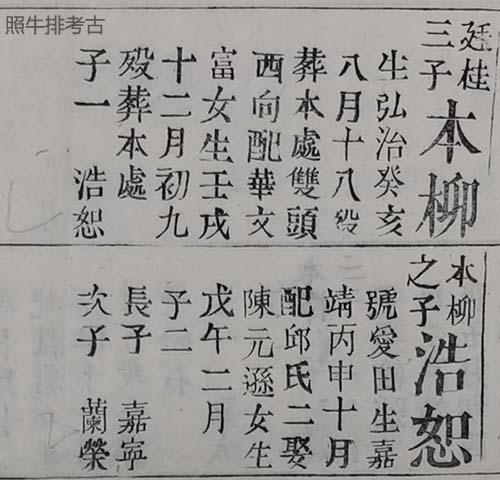 照牛排考古
廷桂
三子
本柳
生弘治癸亥
八月十八殁
葬本處雙頭
西向配華文
富女生壬戌
十二月初九
殁葬本處
子一 浩恕
本柳
之子
浩恕
號愛田生嘉
靖丙申十月
配邱氏二娶
陳元遜女生
戊午二月
子二
長子 嘉寧
次子 蘭榮